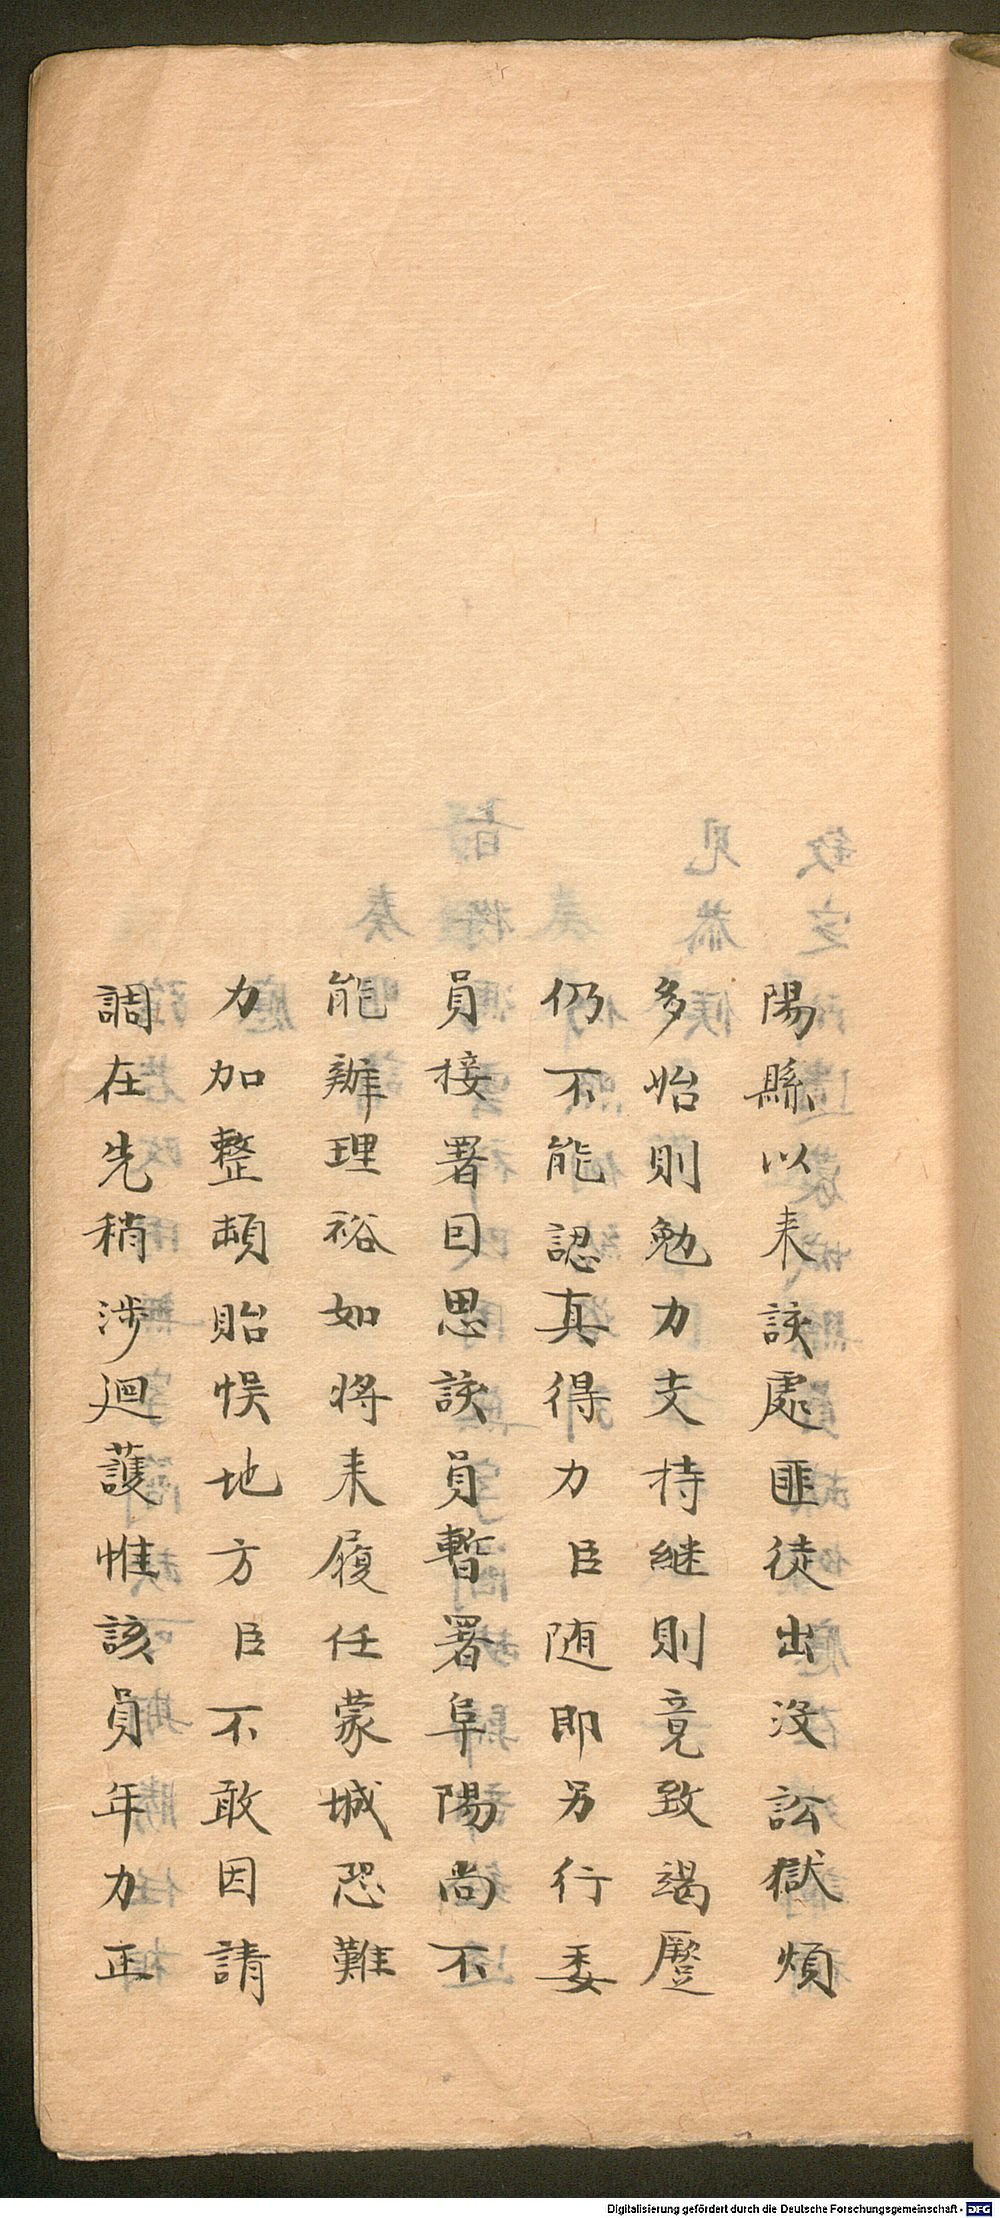 陽縣以来該處匪徒出没訟獄煩
多始則勉力支持継則竟致竭蹷
仍不能認真得力臣随即另行委
員接署因思該員暫署阜陽尚不
能辦理裕如将来履任蒙城恐難
力加整頓貽悞地方臣不敢因請
調在先稍涉迴護惟該員年力正
Digitalisierung gefördert durch die Deutsche Forschungsgemeinschaft - DFG